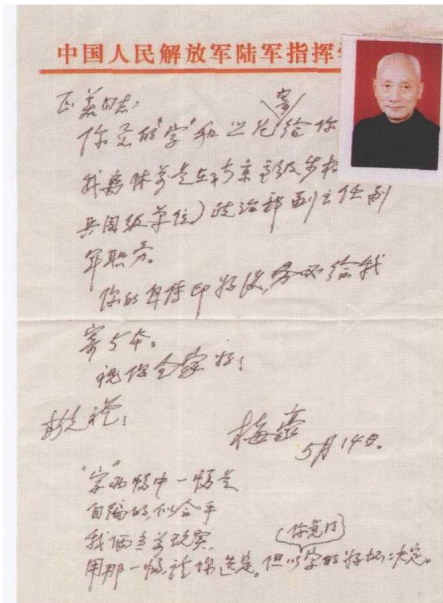 中国人民解放军陆军指挥
正善同志:
你要的"字"和照片寄给你
我离休前是在南京高级步校
兵团级单位)政治部副主任副
军职务。
你的自传印好后,务必给我
寄5本。
祝你全家好!
敬礼!
梅嘉
5月14日。
"字"两幅中一幅是
自编的,似合乎
我俩当前现实,
用那一幅请你选定。但以(你觉得)字的好坏决定。